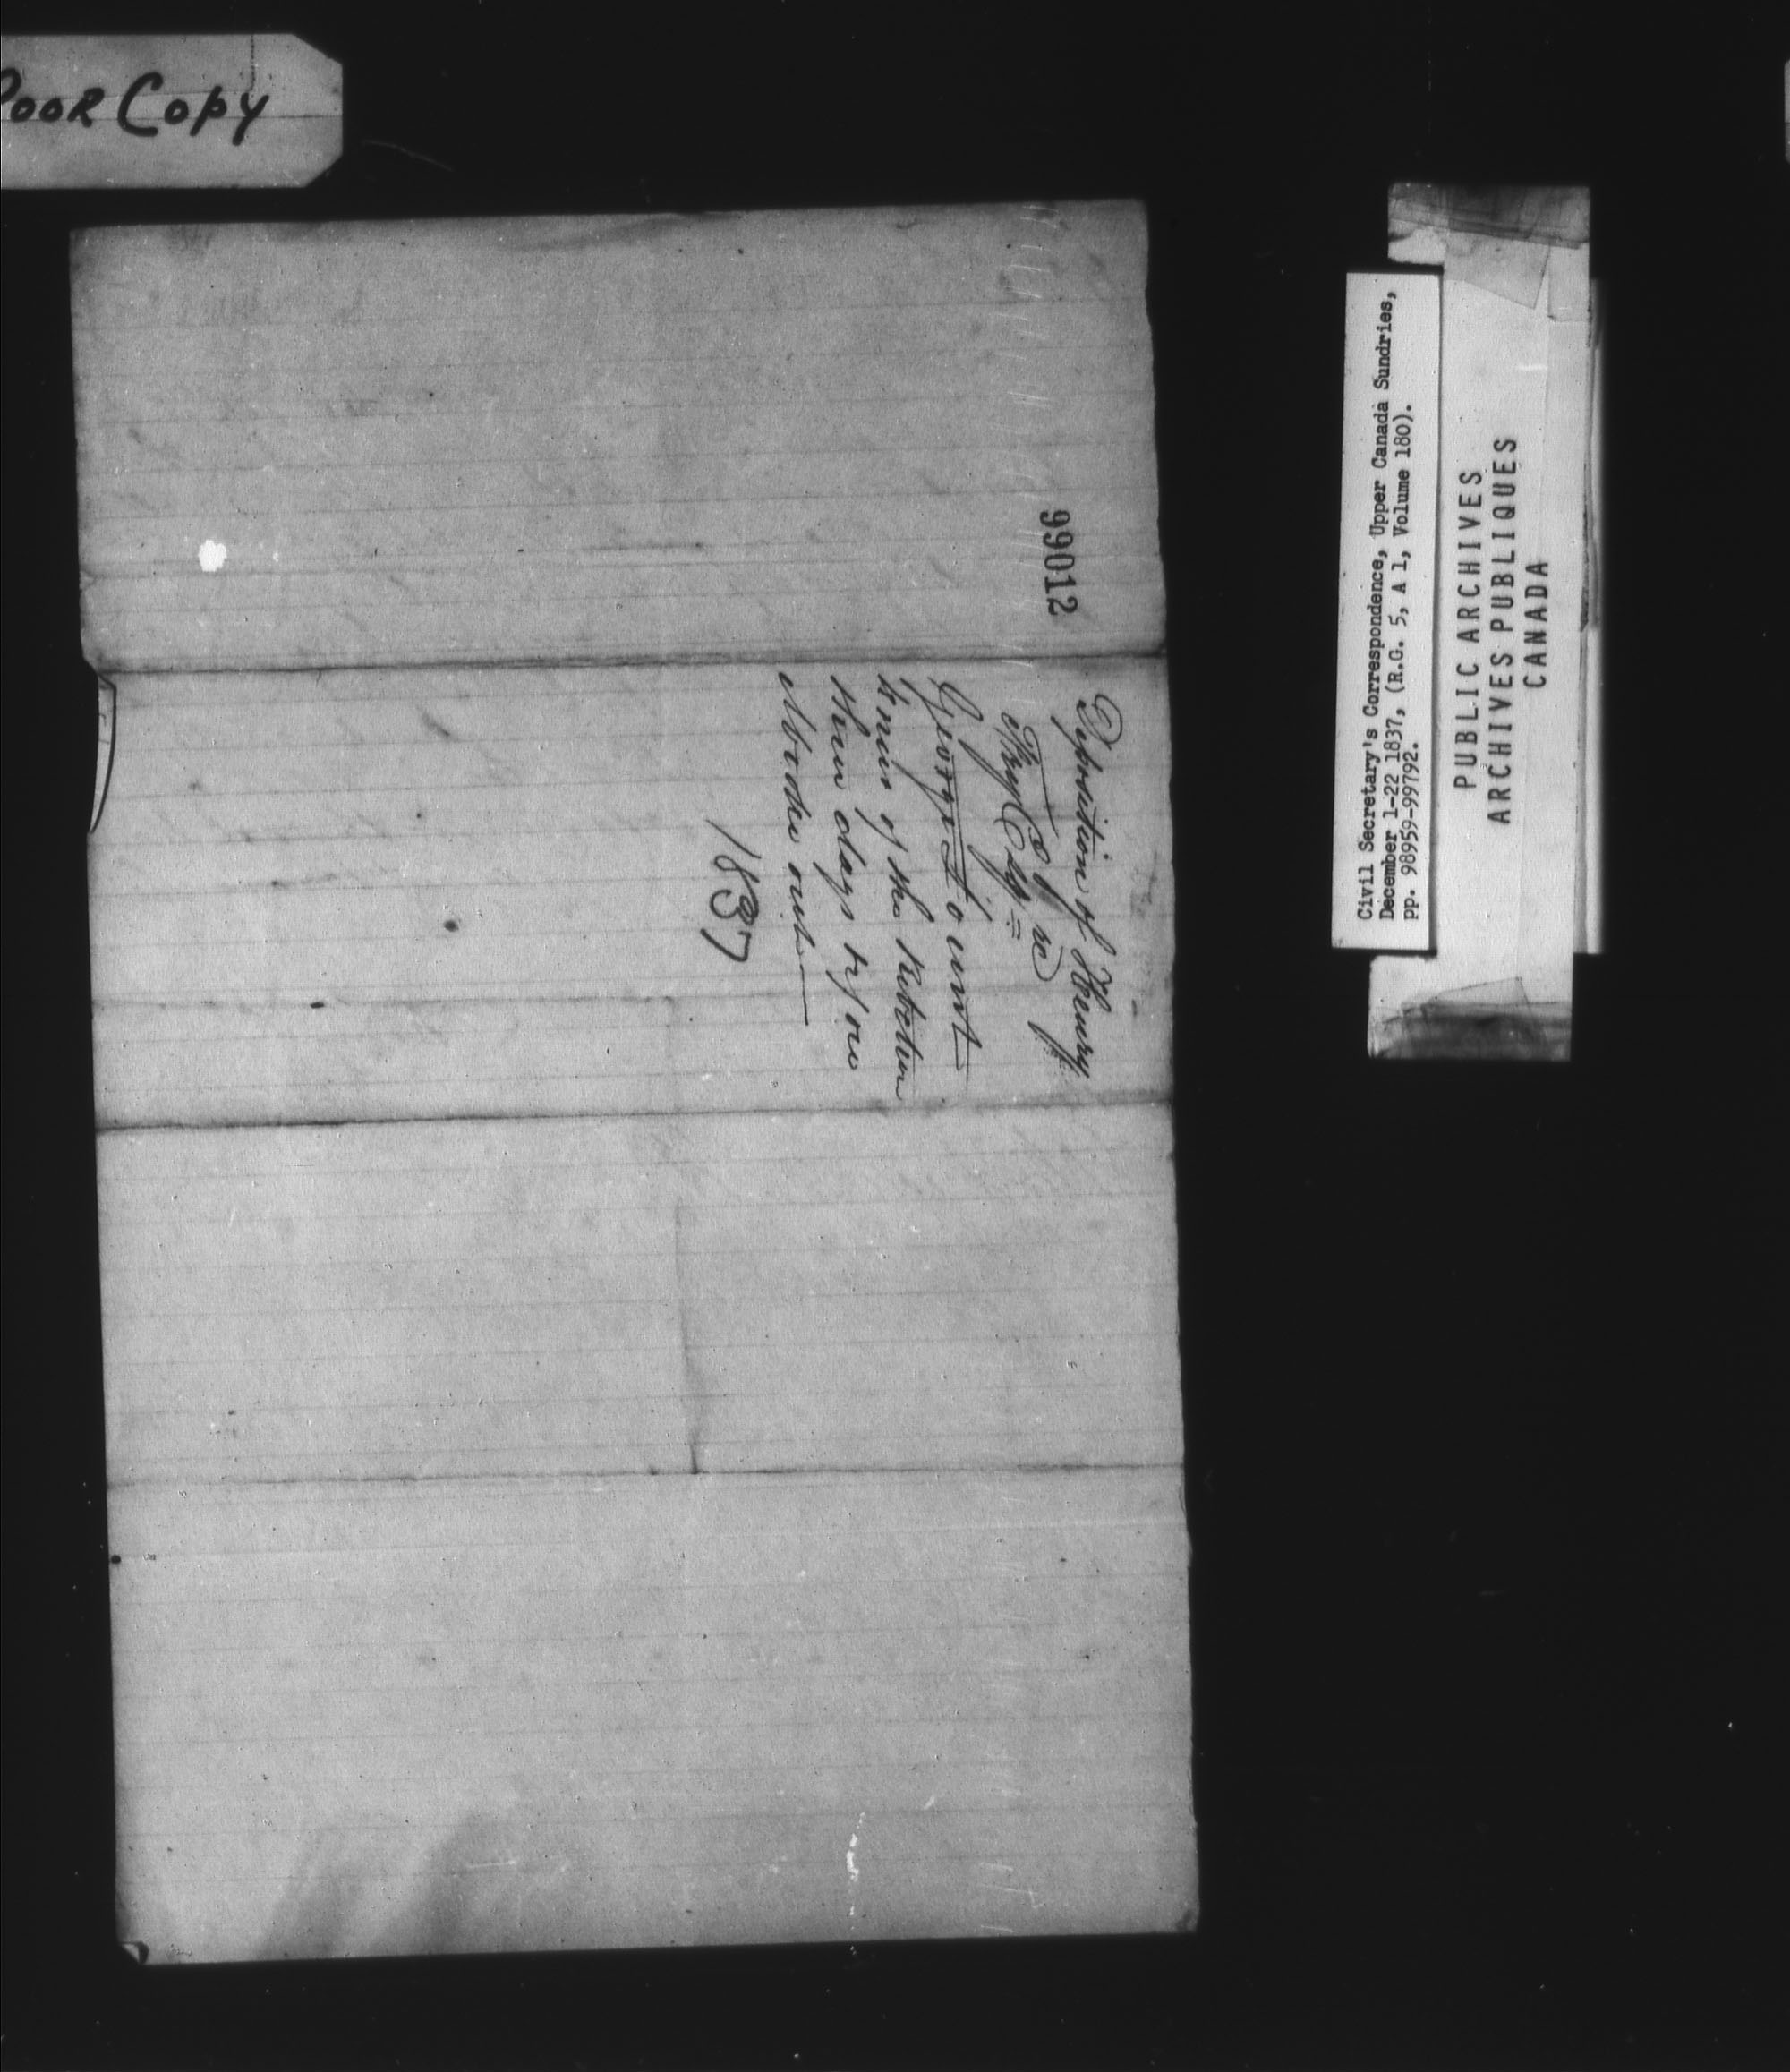 Poor Copy
99012
Deposition of Henry
Fry Esq=
George Lount
knew of the Rebellion
three days before
broke out
1837
Civil Secretary's Correspondence, Upper Canada Sundries,
December 1-22 1837, (R.G. 5, A 1, Volume 180).
pp. 98959-99792.
PUBLIC ARCHIVES
ARCHIVES PUBLIQUES
CANADA